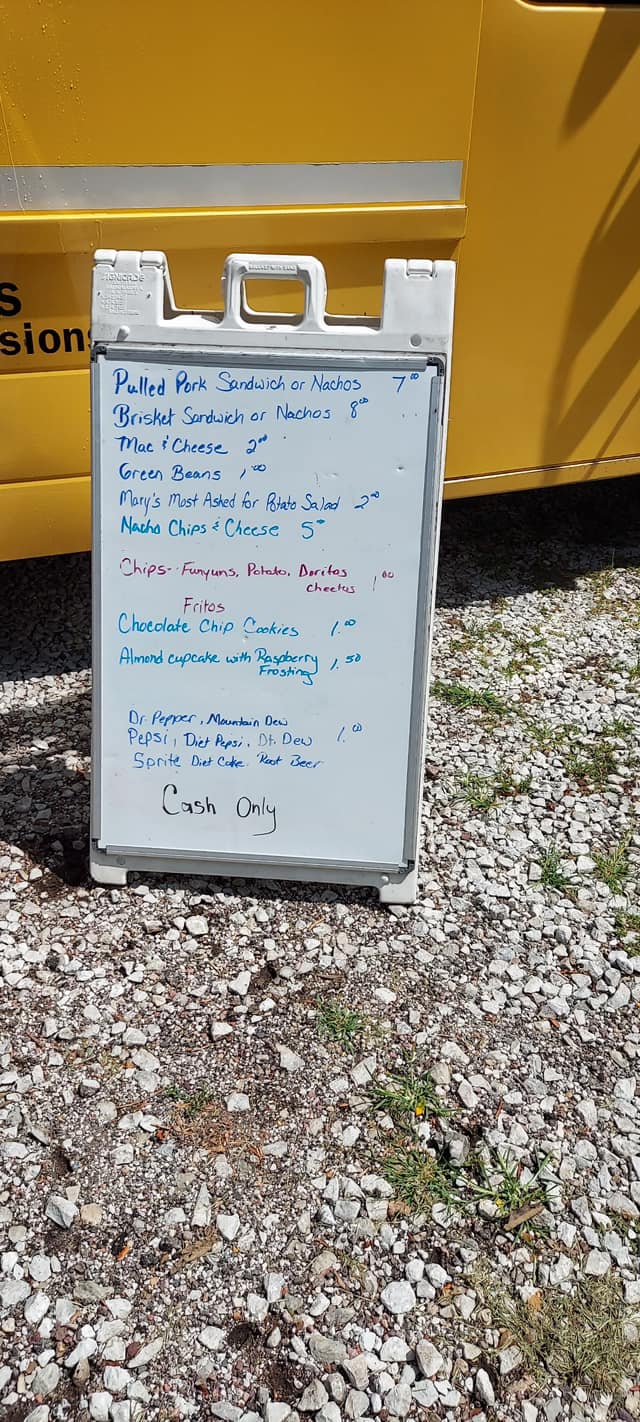 S
sion
Pulled Pork Sandwich or Nachos 7.00
Brisket Sandwich or Nachos 8.00
Mac & Cheese 2.00
Green Beans 1.00
Mary's Most Asked for Potato Salad 2.00
Nacho Chips & Cheese 5.00
Chips- Funyuns, Potato, Doritos 1.00
Cheetos
Fritos
Chocolate Chip Cookies 1.00
Almond cupcake with Raspberry 1.50
Frosting
Dr. Pepper, Mountain Dew
Pepsi, Diet Pepsi, Dt. Dew 1.00
Sprite Diet Coke Root Beer
Cash Only